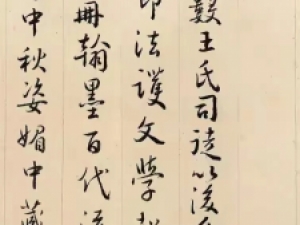 瑴王氏司徒以後
印法護文學
冊翰墨百代
中秋姿媚中藏